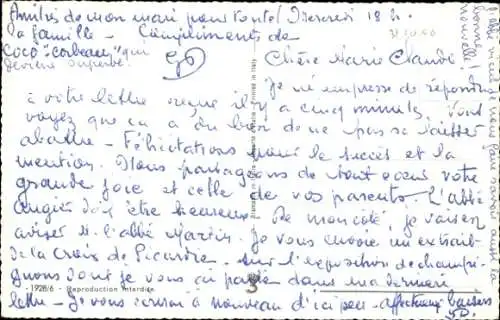 Amitiés de mon mari pour toute
la famille - Compliments de
Coco "corbeau" qui
devient superbe!
Mercredi 18 h.
Chère Marie Claude!
Je m'empresse de répondre
à votre lettre reçue il y a cinq minutes. Vous
voyez que ça a du bon de ne pas se laisser
abattre - Félicitations pour le succès et la
mention. Nous partageons de tout coeur votre
grande joie et celle de vos parents. L'abbé
doit être heureux. De mon côté, je vais
aviser M. l'abbé Martin. Je vous envoie un extrait
de la Croix de Picardie sur l'exposition de champi-
gnons dont je vous ai parlé dans ma dernière
lettre - Je vous écrirai à nouveau d'ici peu - affectueux baisers
1928/6 - Reproduction interdite